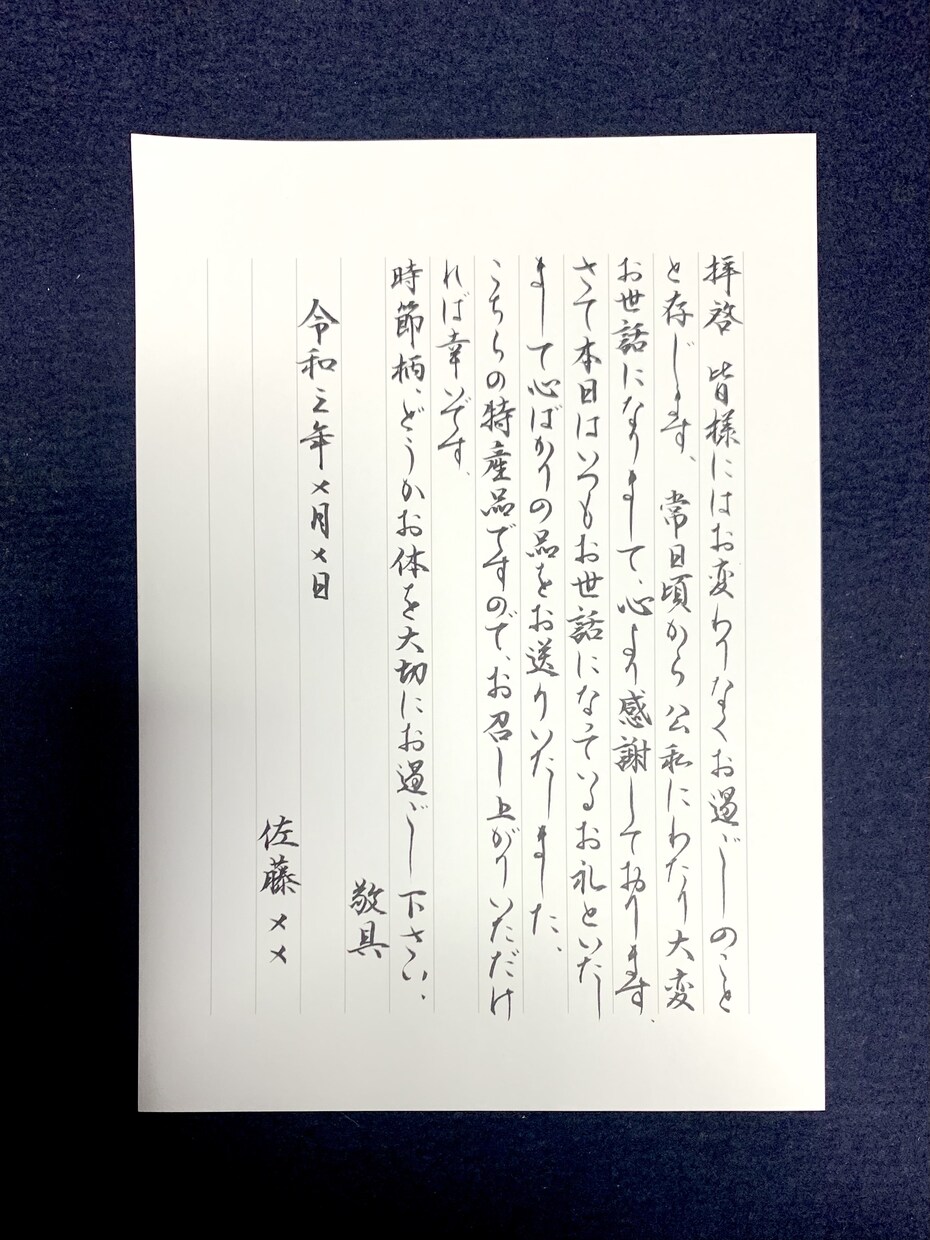 拝啓 皆様にはお変わりなくお過ごしのこと
と存じます、 常日頃から公私にわたり大変
お世話になりまして、心より感謝しております、
さて本日はいつもお世話になっているお礼といたし
まして心ばかりの品をお送りいたしました、
こちらの特産品ですので、お召し上がりいただけ
れば幸いです、
時節柄、どうかお体を大切にお過ごし下さい、
敬具
令和三年××月×日
佐藤××